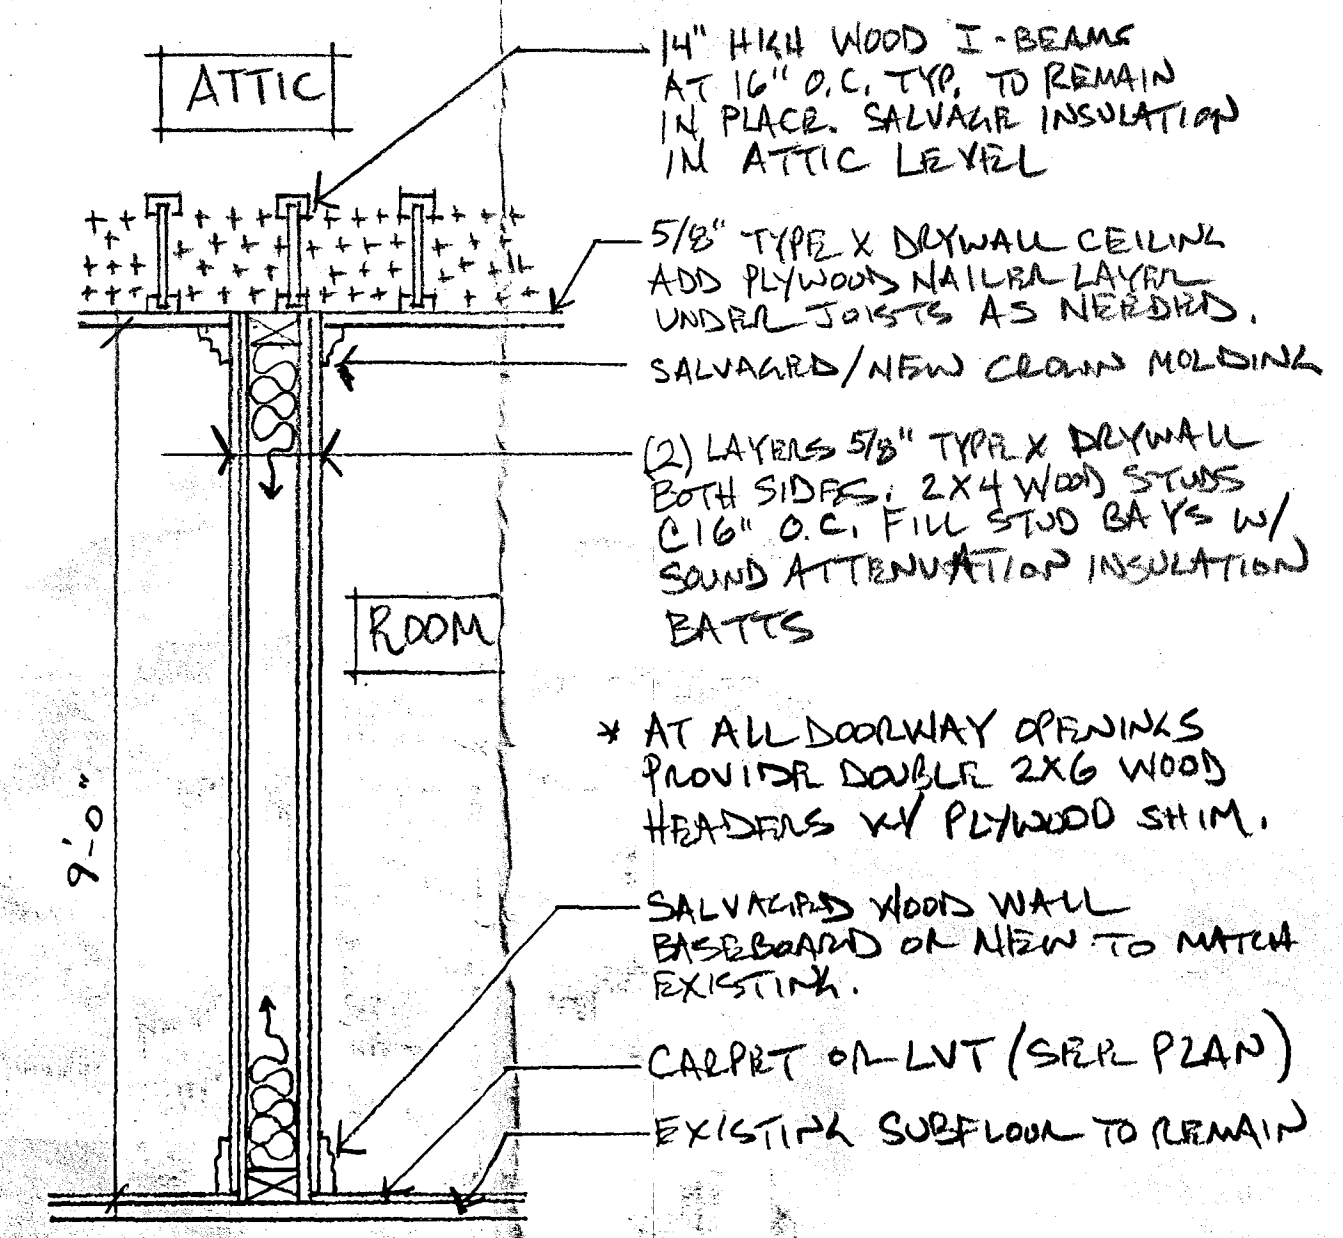 ATTIC
14" HIGH WOOD I-BEAMS
AT 16" O.C. TYP. TO REMAIN
IN PLACE. SALVAGE INSULATION
IN ATTIC LEVEL
5/8" TYPE X DRYWALL CEILING
ADD PLYWOOD NAILER LAYER
UNDER JOISTS AS NEEDED.
SALVAGED/NEW CROWN MOLDING
(2) LAYERS 5/8" TYPE X DRYWALL
BOTH SIDES. 2X4 WOOD STUDS
@16" O.C. FILL STUD BAYS W/
SOUND ATTENUATION INSULATION
BATTS
ROOM
* AT ALL DOORWAY OPENINGS
PROVIDE DOUBLE 2X6 WOOD
HEADERS W/ PLYWOOD SHIM.
9'-0"
SALVAGED WOOD WALL
BASEBOARD OR NEW TO MATCH
EXISTING.
CARPET OR LVT (SEE PLAN)
EXISTING SUBFLOOR TO REMAIN